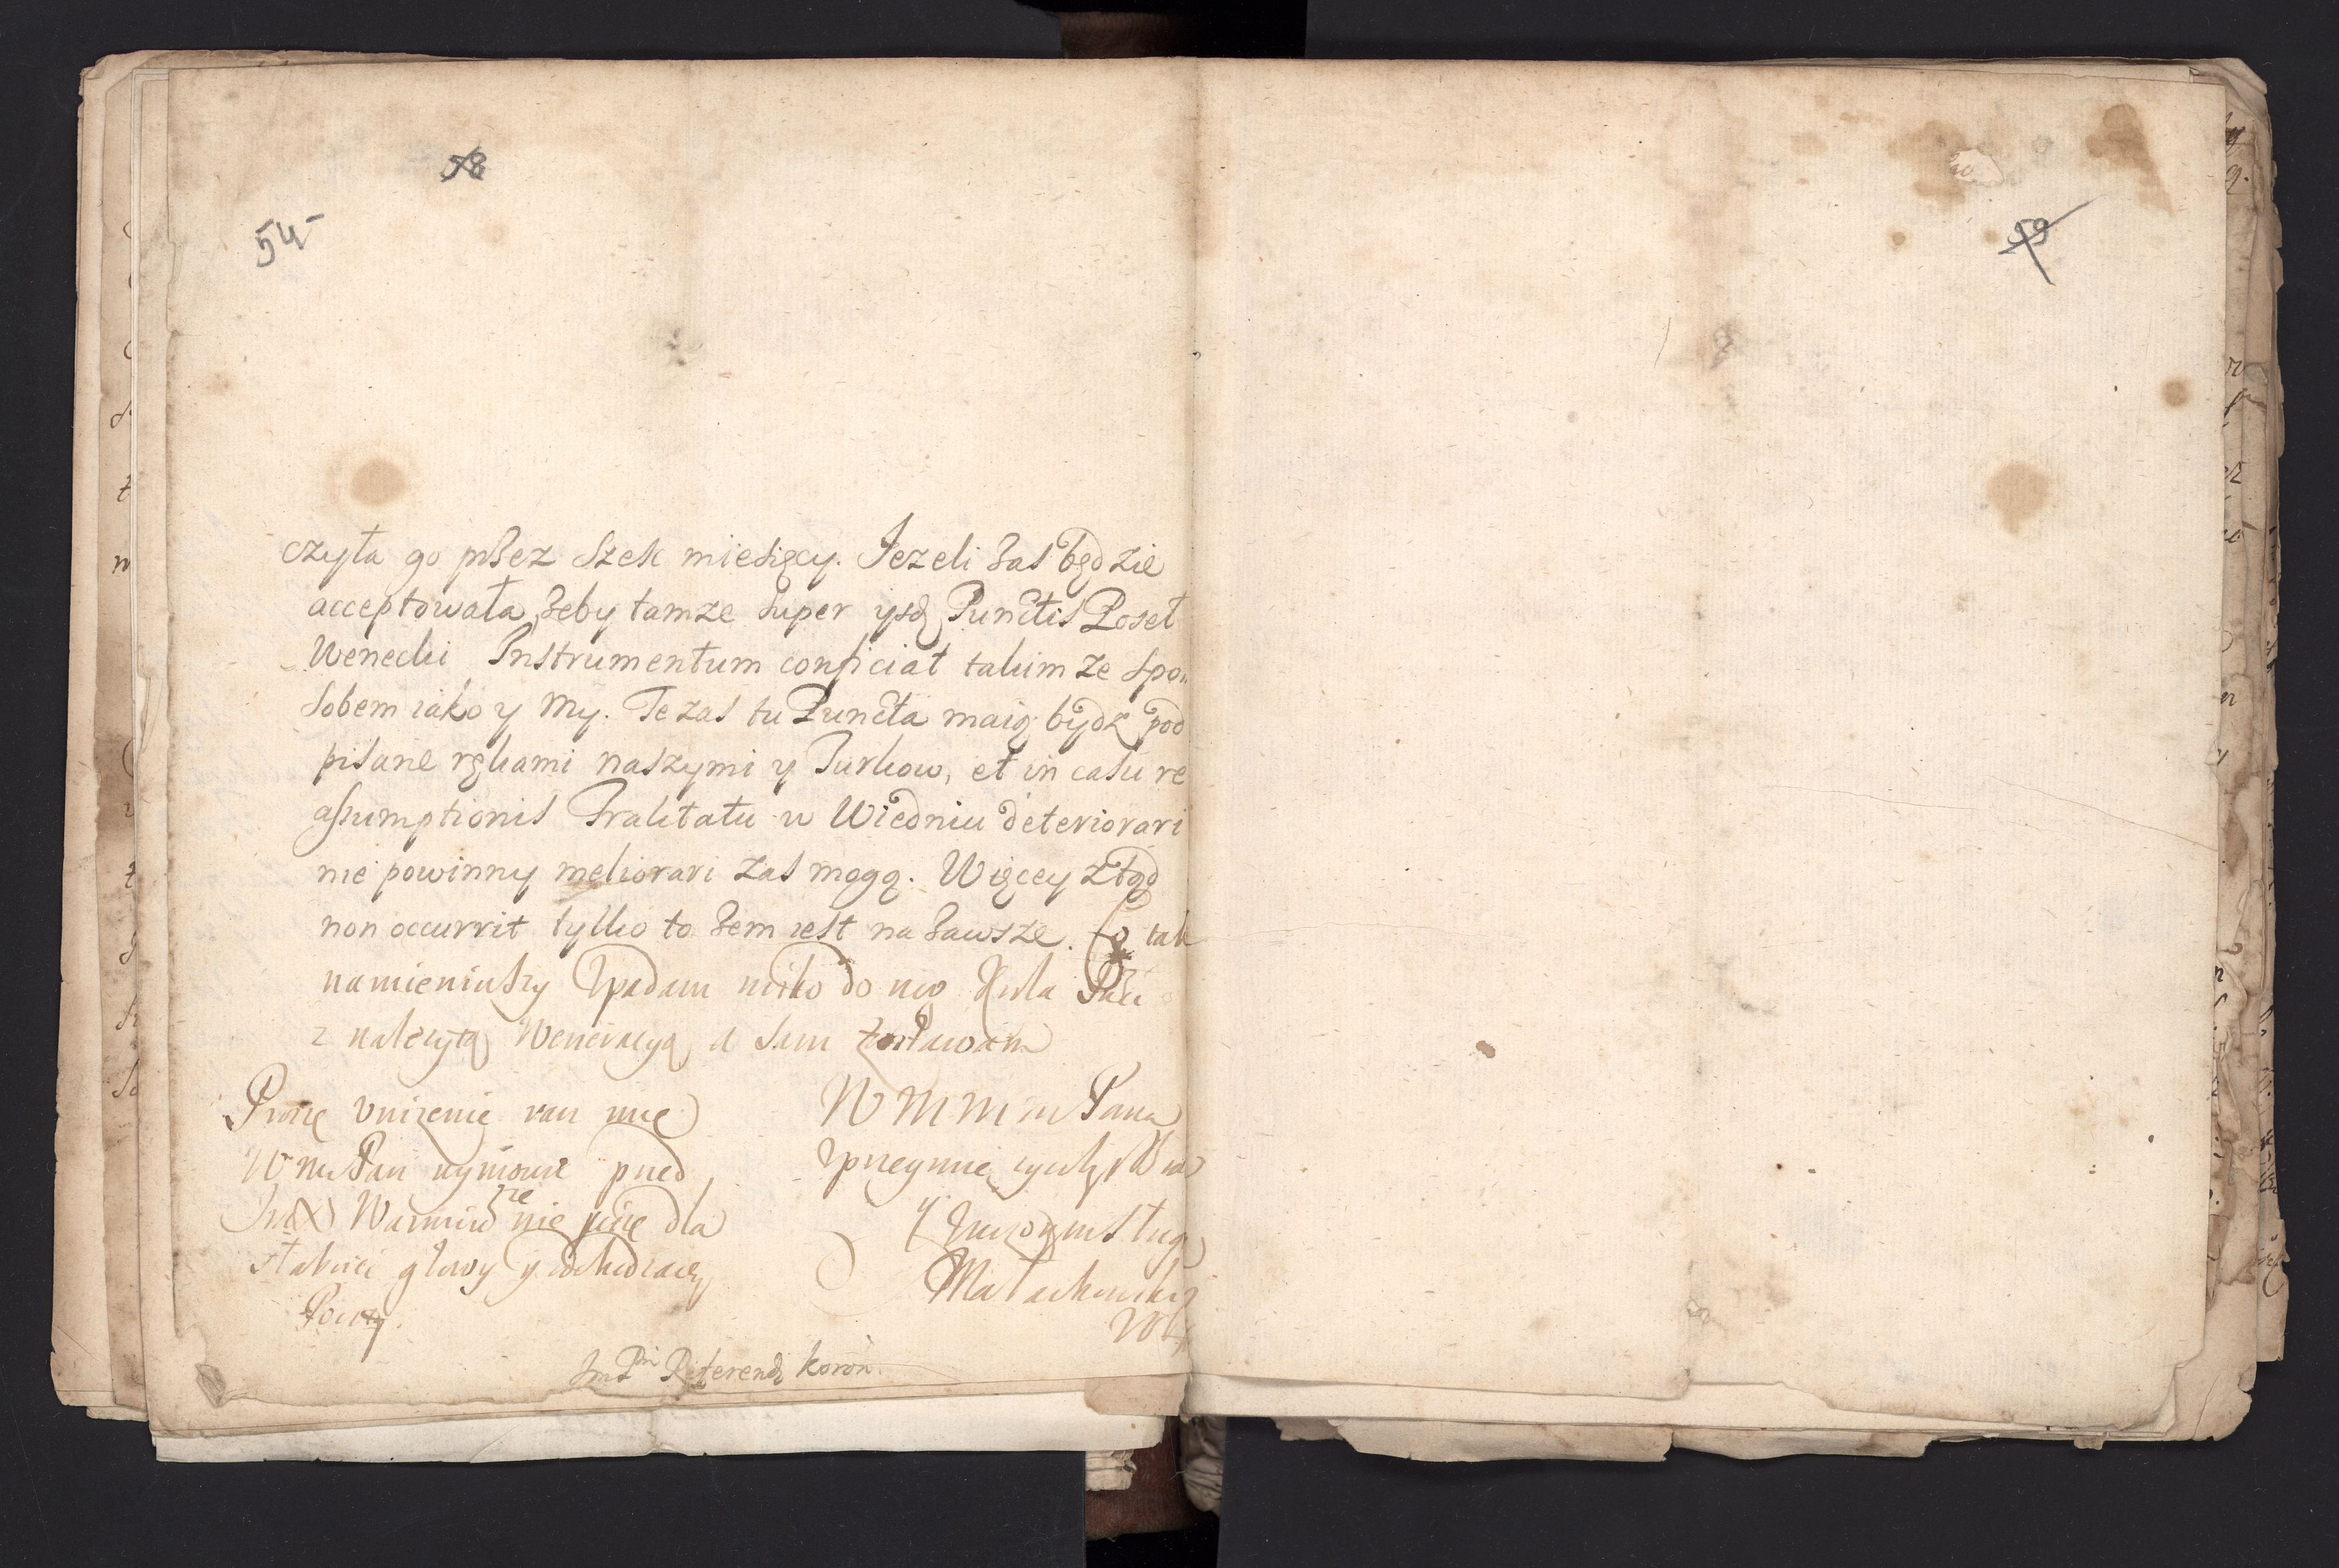 58
54
59
czyła go przez szesc miesięcy. Jezeli zas będzie
acceptowała, żeby tamze super ysd Punctis Poseł
Wenecki Instrumentum conficiat takim ze spo„
sobem iako y My. Te zas tu Puncta maią bydz pod
pisane rękami naszymi y Turkow, et in casu re
assumptionis Traktatu w Wiedniu deteriorari
nie powinny meliorari zas mogą. Więcey ztąd
non occurrit tylko to żem iest na zawsze. Co tak
namieniwszy Upadam nisko do nog Krola Pana
z nalezytą Weneracyą a sam zostawam
Proszę unizenie racz mię
W M Pan wymowic przed
Jmć X Warmins ze nie piszę dla
słabosci głowy y odchodzący
Poczty.
W M M m Pana
Uprzeymie zyczliwym
y sługą
Małachowski
Jm Pn Referend Koron.